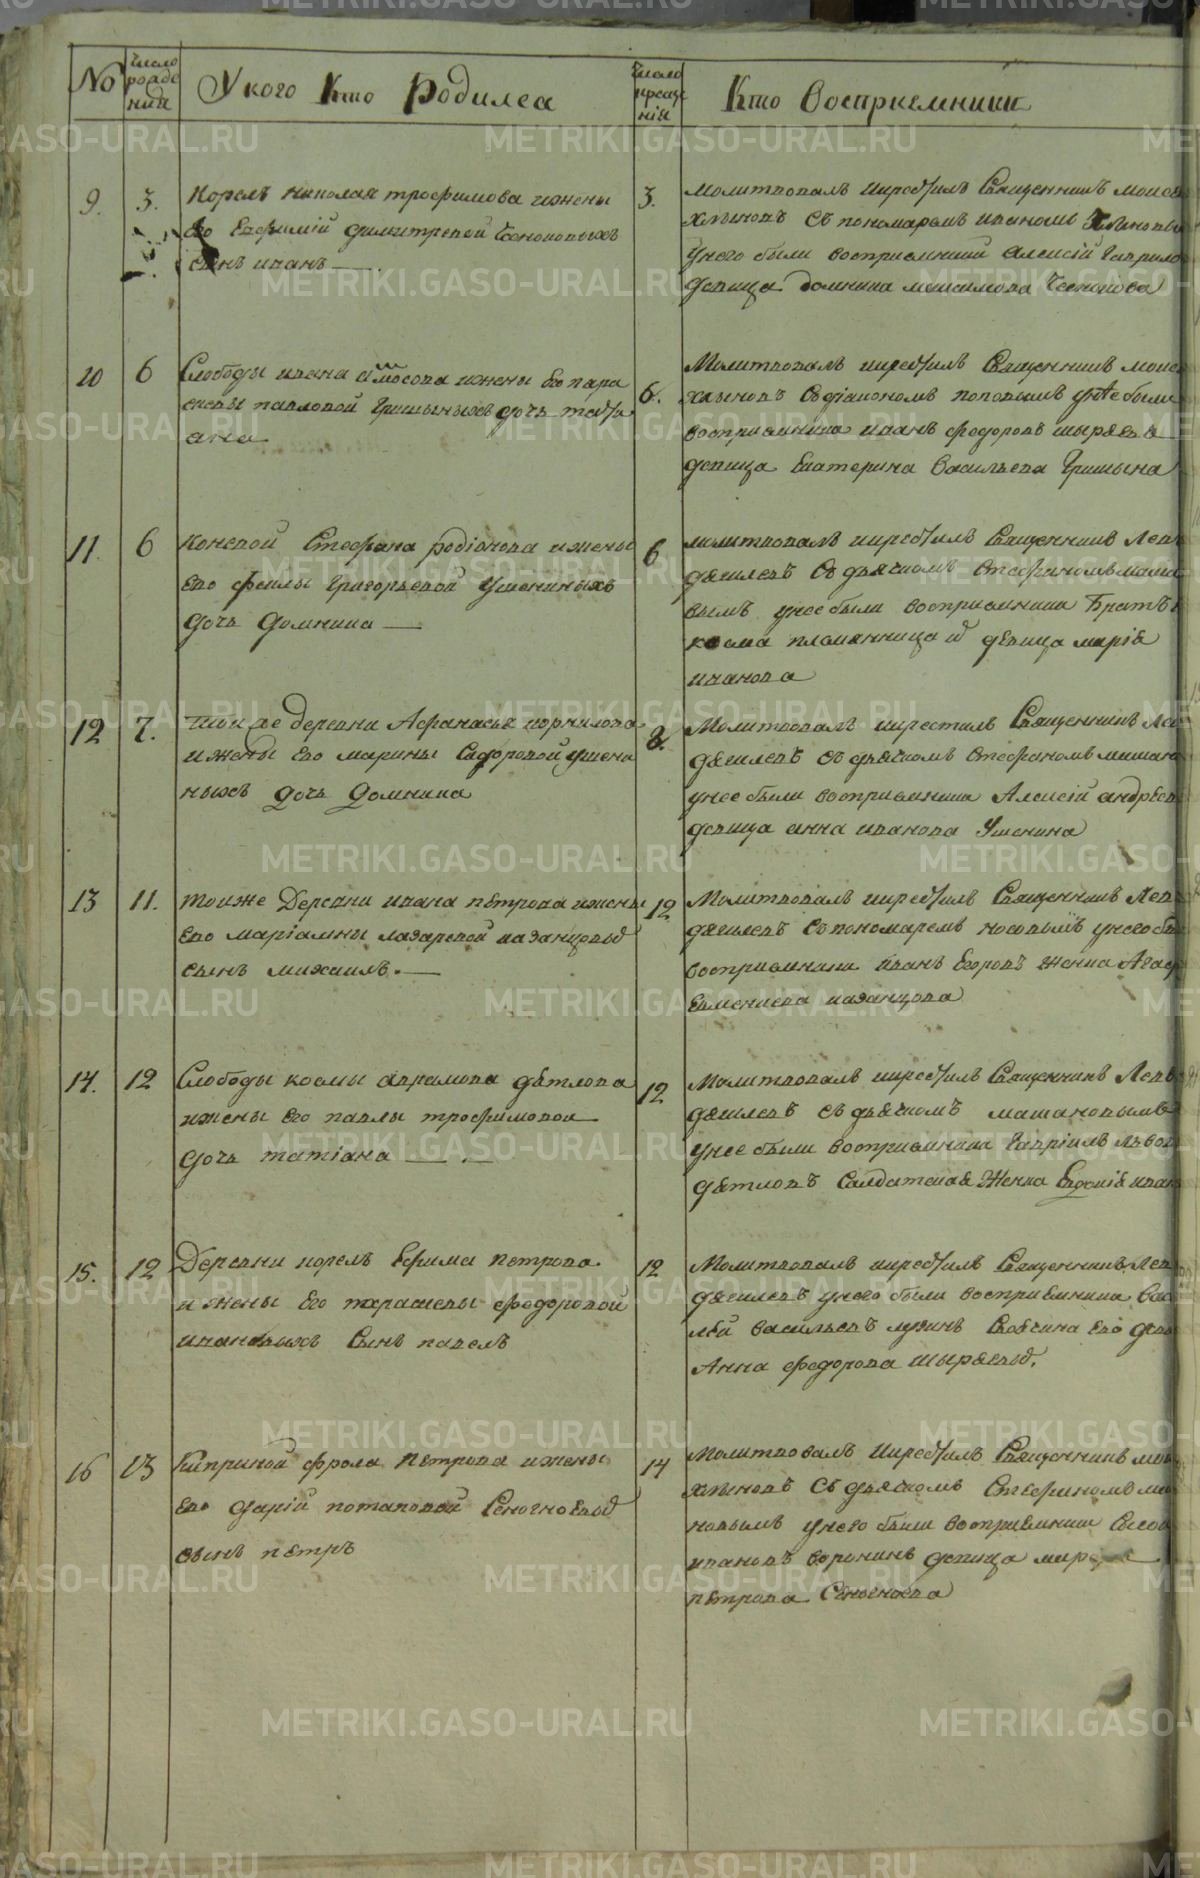 No
число рожде ния
У кого Кто Родилса
число креще нія
Кто Восприемники
9.
3.
Корелъ николая трофимова ижены
его Евфимiи димитревой
сынъ иванъ
3.
Молитвовалъ икрестилъ Священникъ моисе
хлыновъ съ пономаремъ иваномъ
унего были восприемники алексiй гаврило
девица домника максимова
10
6
Слободы ивана амосова ижены Его пара
скевы павловой Гришыныхъ дочь татi
ана
6.
Молитвовалъ икрестилъ Священникъ моисе
хлыновъ съ дiакономъ поповымъ унее были
восприемника иванъ федоровъ шыряевъ
девица Екатерина васильева Гришына
11.
6
Коневой Стефана родiонова ижены
Его феклы григорьевой Ушениныхъ
дочь Домника
6
молитвовалъ икрестилъ Священникъ Лев
дягилевъ съ дьячкомъ Стефаномъ
вымъ унее были восприемники Братъ
косма племянница и девица марiя
иванова
12
7.
той же деревни Афанасья корнилова
и жены Его марины Сидоровой ушени
ныхъ дочь Домника
8.
Молитвовалъ икрестилъ Священникъ Лев
дягилевъ съ дьячкомъ Стефаномъ
унее были восприемники Алексiй андрее
девица анна иванова Ушенина
13
11.
тоиже Деревни ивана петрова ижены
Его марiамны лазаревой казанцовыхъ
сынъ михаилъ.
12
Молитвовалъ икрестилъ Священникъ Лев
дягилевъ съ пономаремъ носовымъ унего бы
восприемники иванъ Егоровъ женка Агаф
казанцова
14.
12
Слободы космы аврамова дятлова
ижены Его павлы трофимовои
дочь татiана
12
Молитвовалъ икрестилъ Священникъ Лев
дягилевъ съ дьячкомъ машановымъ
унее были восприемника гаврiилъ львов
дятловъ Салдатская Женка иван
15.
12
Деревни корелъ Ефима петрова
и жены Его параскевы федоровой
ивановыхъ Сынъ павелъ
12
Молитвовалъ икрестилъ Священникъ Лев
дягилевъ унего были восприемника вас
лей васильевъ лузинъ Его дев
Анна федорова шыряевыхъ.
16
13
Киприной фрола Петрова ижены
Его дарiй потаповой
сынъ петръ
14
Молитвовалъ икрестилъ Священникъ мои
хлыновъ Съ дьячкомъ Стефаномъ ма
новымъ унего были восприемники
ивановъ воронинъ девица
петрова